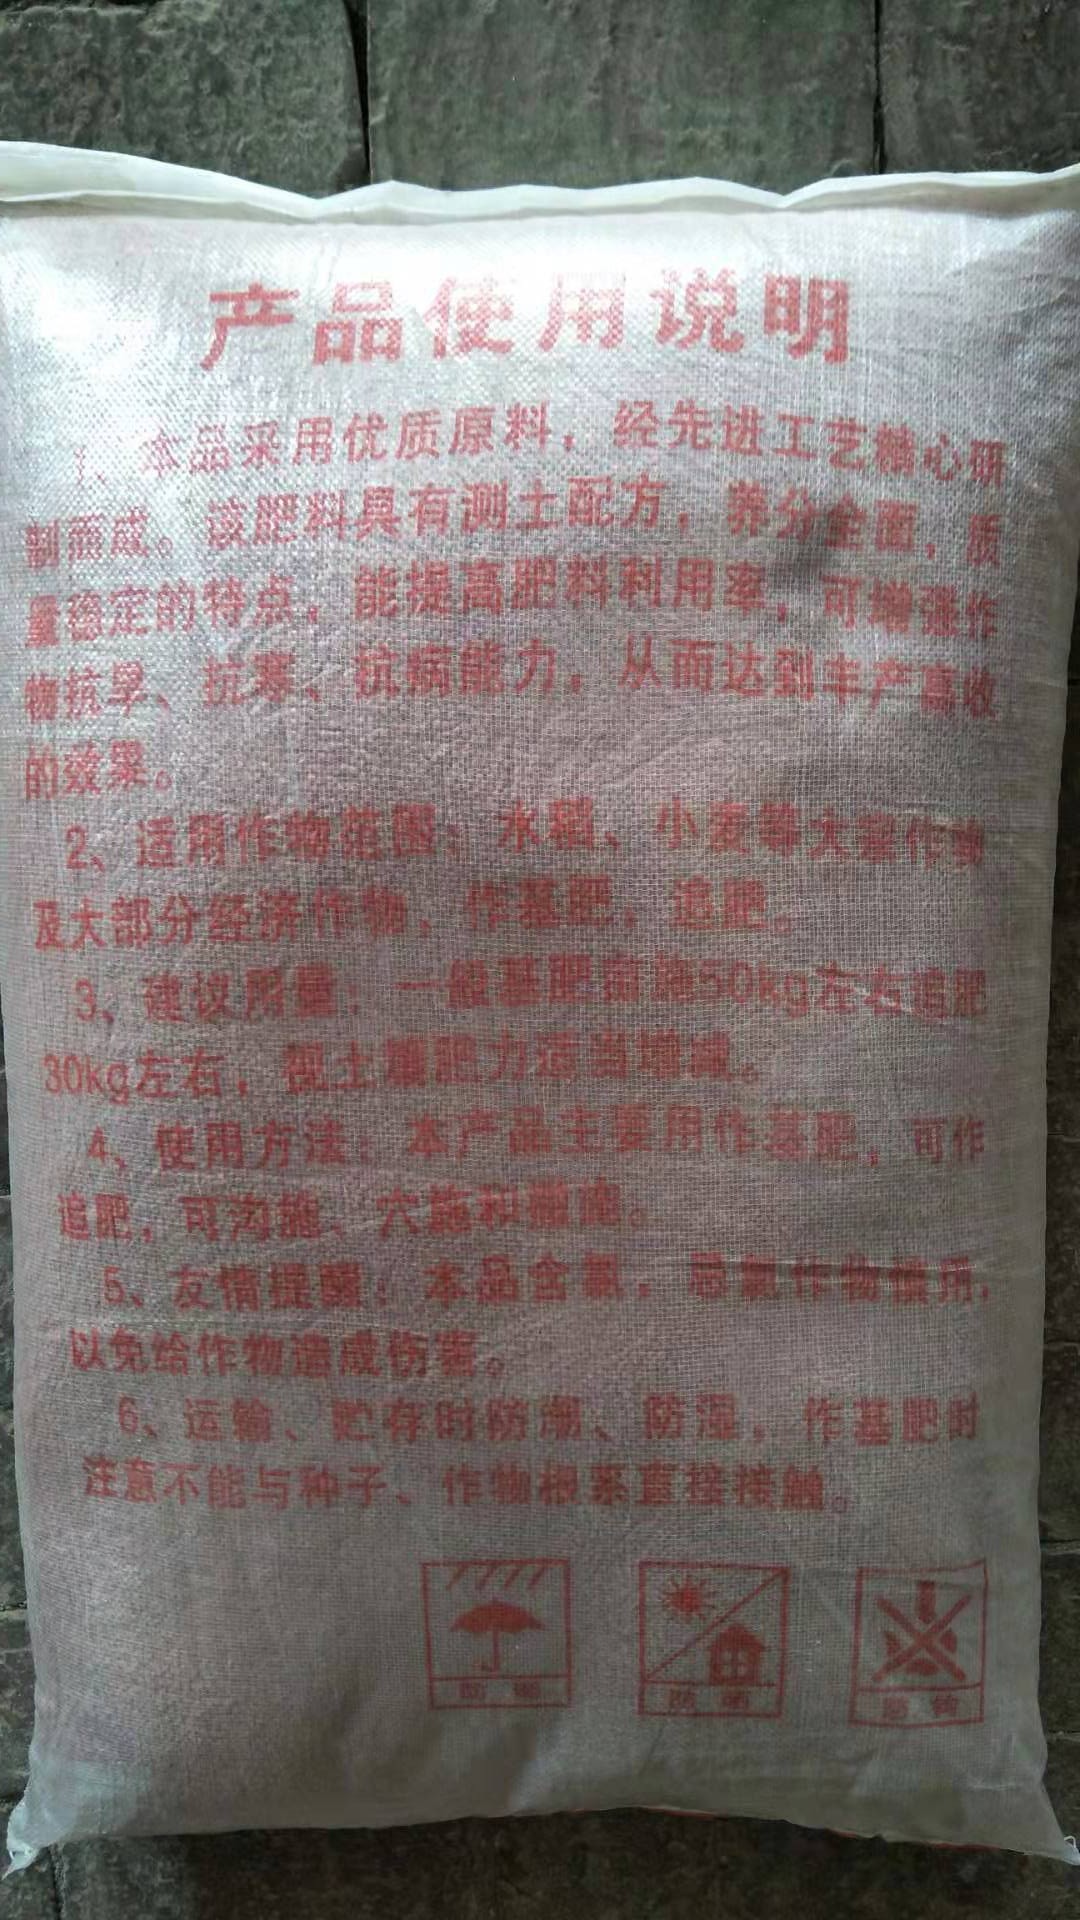 产品使用说明
1、本品采用优质原料，经先进工艺精心研
制而成。该肥料具有测土配方，养分全面，质
量稳定的特点，能提高肥料利用率，可增强作
物抗旱、抗寒、抗病能力，从而达到丰产高收
的效果。
2、适用作物范围：水稻、小麦等大田作物
及大部分经济作物，作基肥，追肥。
3、建议用量：一般基肥亩施50kg左右追肥
30kg左右，视土壤肥力适当增减。
4、使用方法：本产品主要用作基肥，可作
追肥，可沟施、穴施和撒施。
5、友情提醒：本品含氯，忌氯作物慎用，
以免给作物造成伤害。
6、运输、贮存时防潮、防湿，作基肥时
注意不能与种子、作物根系直接接触。
防晒
防钩